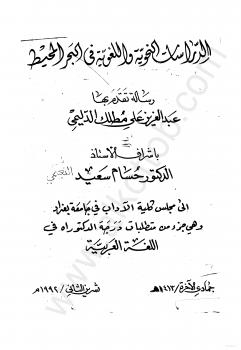 الدراسات النحوية واللغوية في البحر المحيط
رسالة تقدم بها
عبد العزيز علي مطلك الدليمي
باشراف الاستاذ
الدكتور حسام سعيد النعيمي
الى مجلس كلية الآداب في جامعة بغداد
وهي جزء من متطلبات درجة الدكتوراه في
اللغة العربية
جمادى الآخرة/١٤١٣هـ
تشرين الثاني/١٩٩٢م